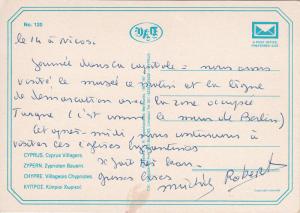 No. 120
A POST OFFICE
PREFERRED SIZE
le 14 à Nicos.
Journée dans la capitale = nous avons
visité le musée ce matin et la ligne
de démarcation avec la zone occupée
Turque (c'est comme le mur de Berlin)
Cet après-midi nous continuons à
visiter les églises byzantines
CYPRUS, Cyprus Villagers
ZYPERN, Zyprioten Bauern
CHYPRE, Villageois Chypriotes
ΚΥΠΡΟΣ, Κύπριοι Χωρικοί
Il fait très beau.
grosses bises
Michèle Robert